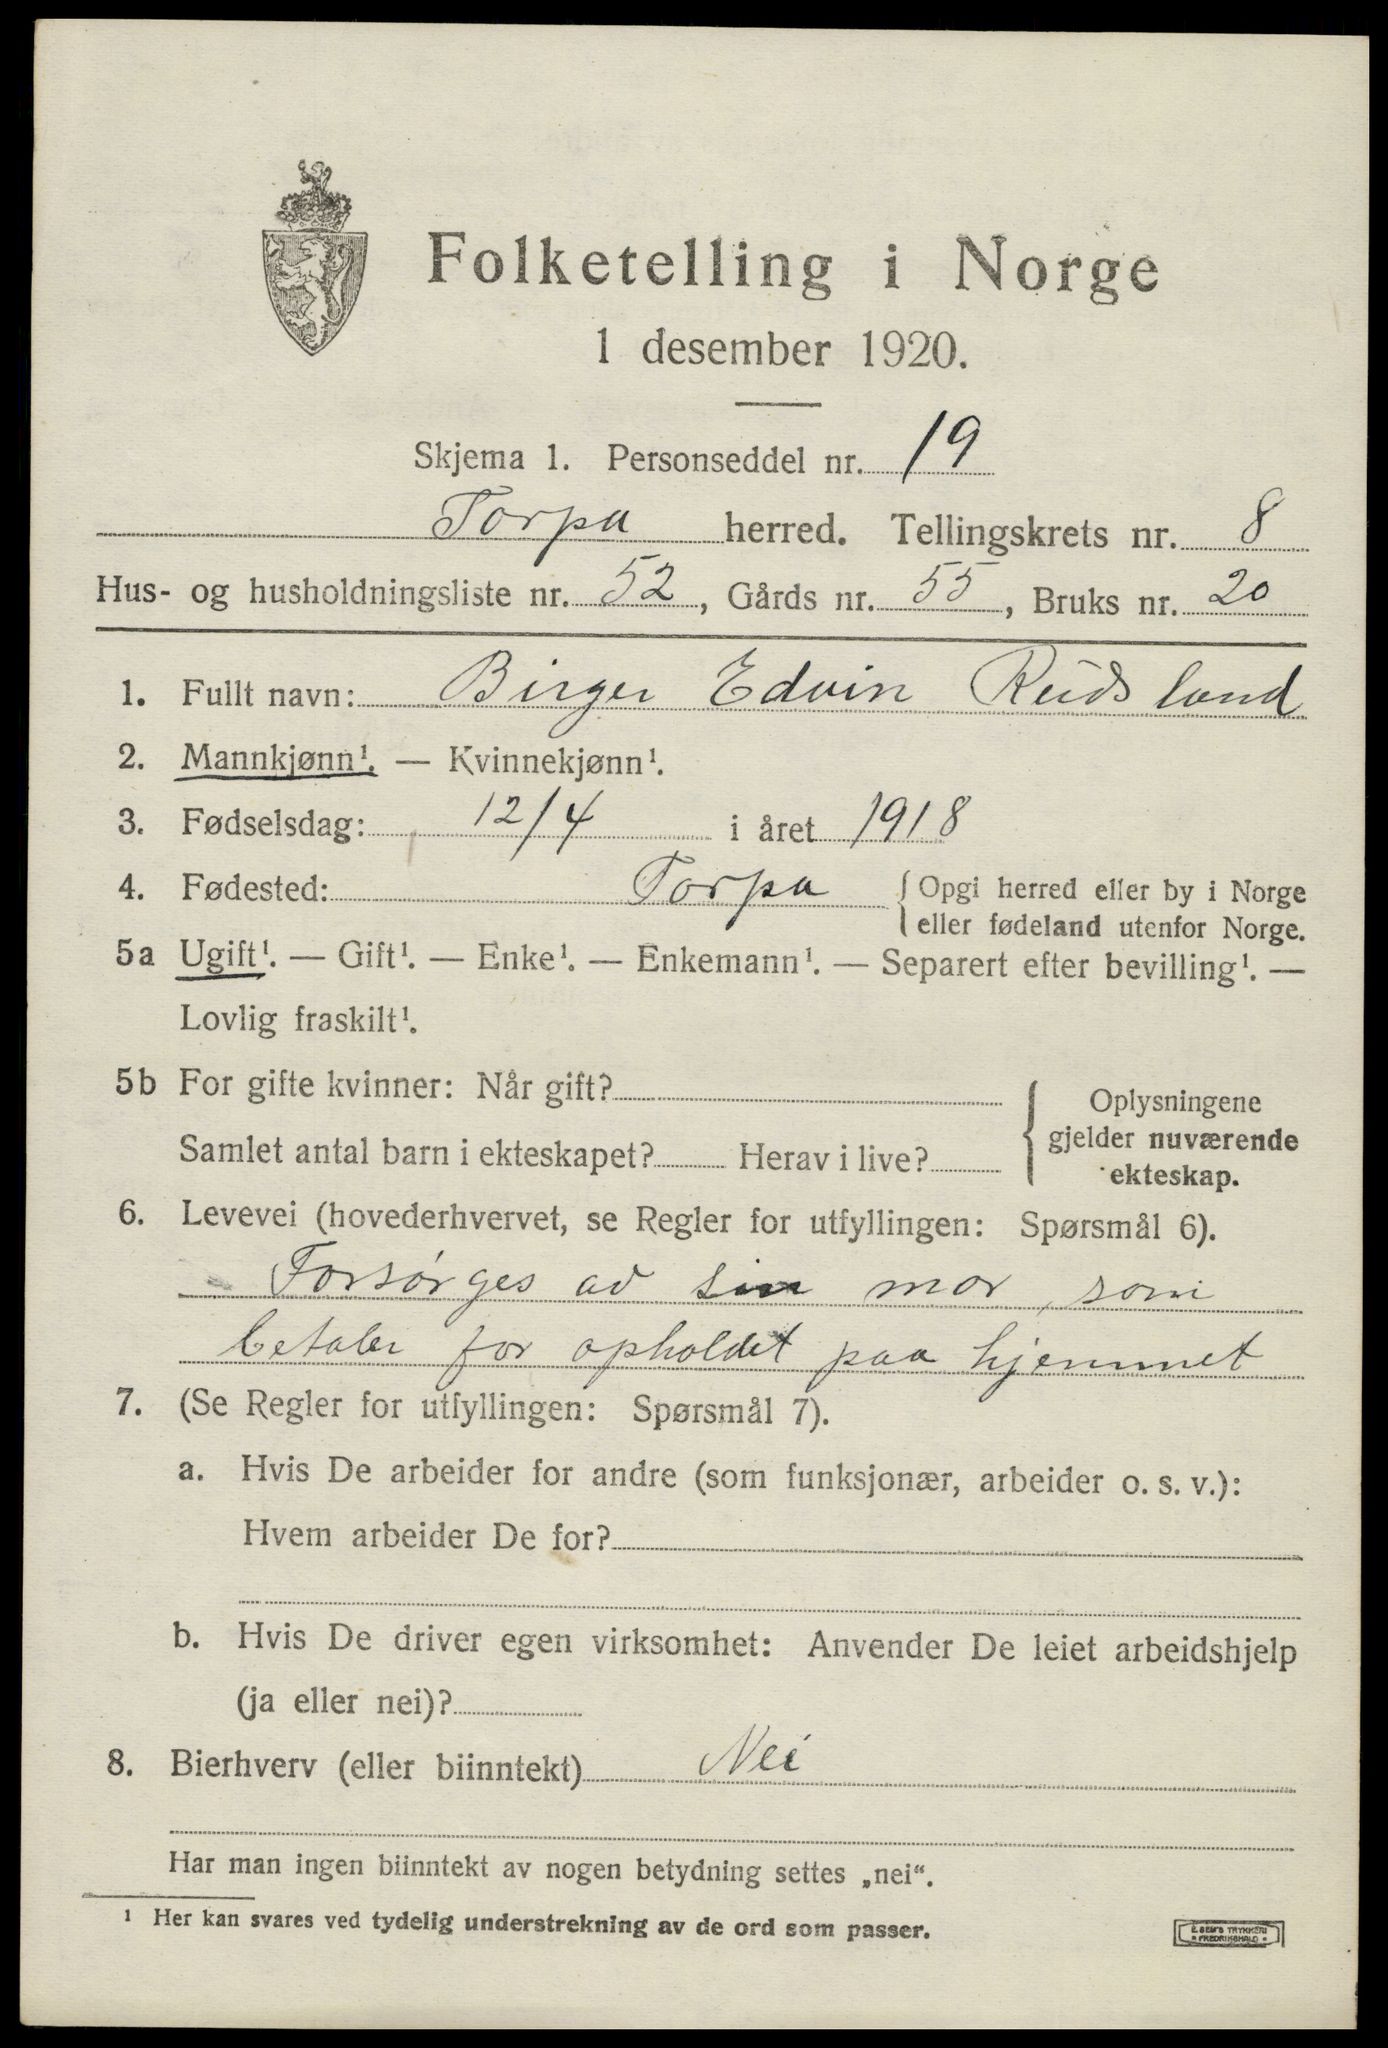 Folketelling i Norge
1 desember 1920.
Skjema 1. Personseddel nr. 19
Torpa herred. Tellingskrets nr. 8
Hus- og husholdningsliste nr. 52, Gårds nr. 55, Bruks nr. 20
1. Fullt navn: Birger Edvin Rudsland
2. Mannkjønn¹. — Kvinnekjønn¹.
3. Fødselsdag: 12/4 i året 1918
4. Fødested: Torpa { Opgi herred eller by i Norge
eller fødeland utenfor Norge.
5a Ugift¹. — Gift¹. — Enke¹. — Enkemann¹. — Separert efter bevilling¹. —
Lovlig fraskilt¹.
5b For gifte kvinner: Når gift?
Samlet antal barn i ekteskapet? Herav i live?
{ Oplysningene
gjelder nuværende
ekteskap.
6. Levevei (hovederhvervet, se Regler for utfyllingen: Spørsmål 6).
Forsørges av sin mor, som
betaler for opholdet paa hjemmet
7. (Se Regler for utfyllingen: Spørsmål 7).
a. Hvis De arbeider for andre (som funksjonær, arbeider o. s. v.):
Hvem arbeider De for?
b. Hvis De driver egen virksomhet: Anvender De leiet arbeidshjelp
(ja eller nei)?
8. Bierhverv (eller biinntekt) Nei
Har man ingen biinntekt av nogen betydning settes „nei“.
¹ Her kan svares ved tydelig understrekning av de ord som passer.
E. SEM'S TRYKKERI
* FREDRIKSHALD *